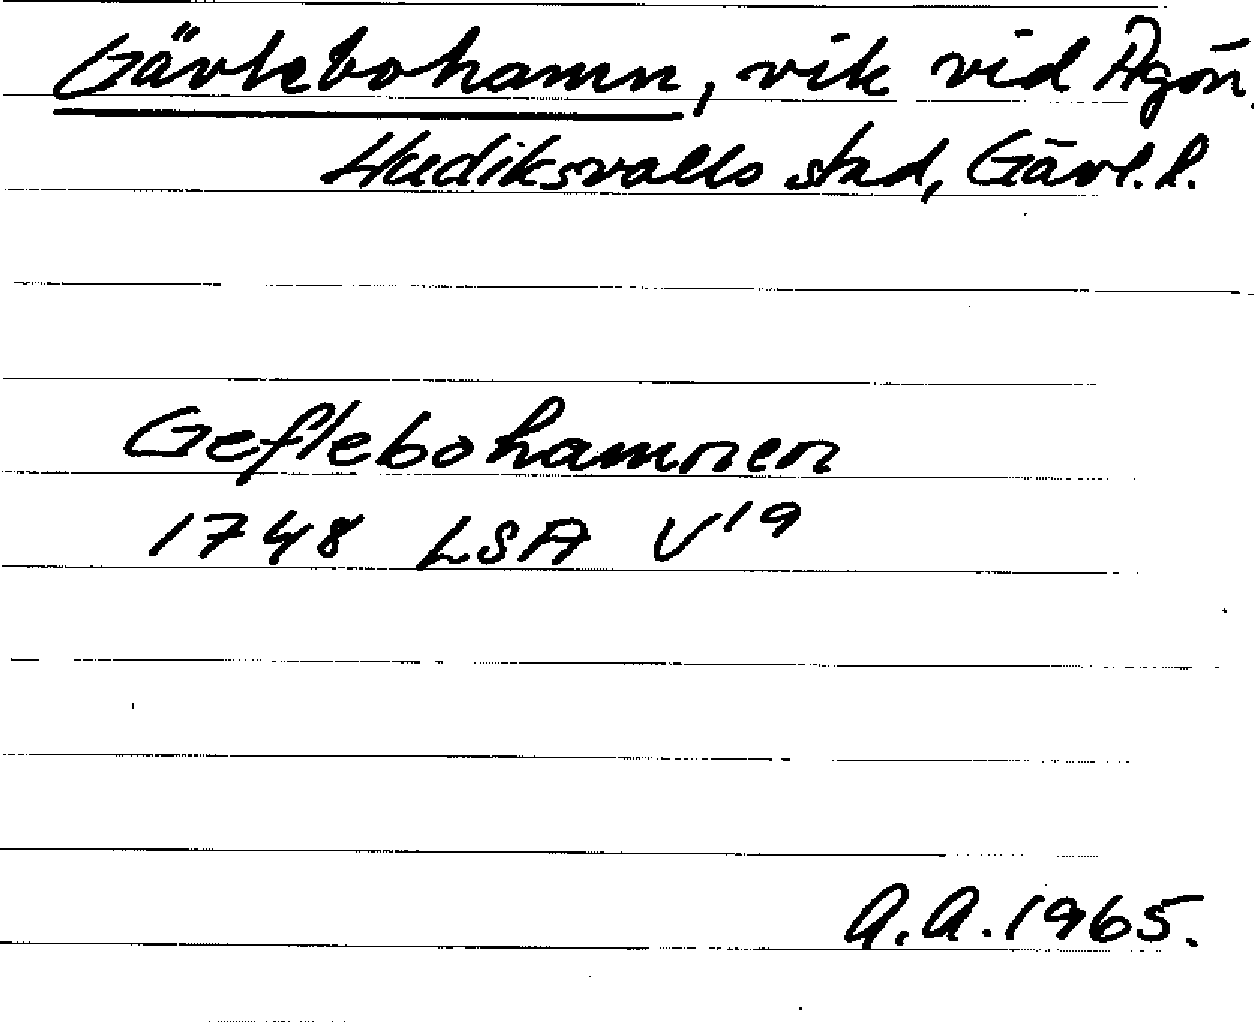 Gävlebohamn, vik vid Agön.
Hudiksvalls stad, Gävl. l.
Geflebohamnen
1748 LSA V¹⁹
A.A. 1965.